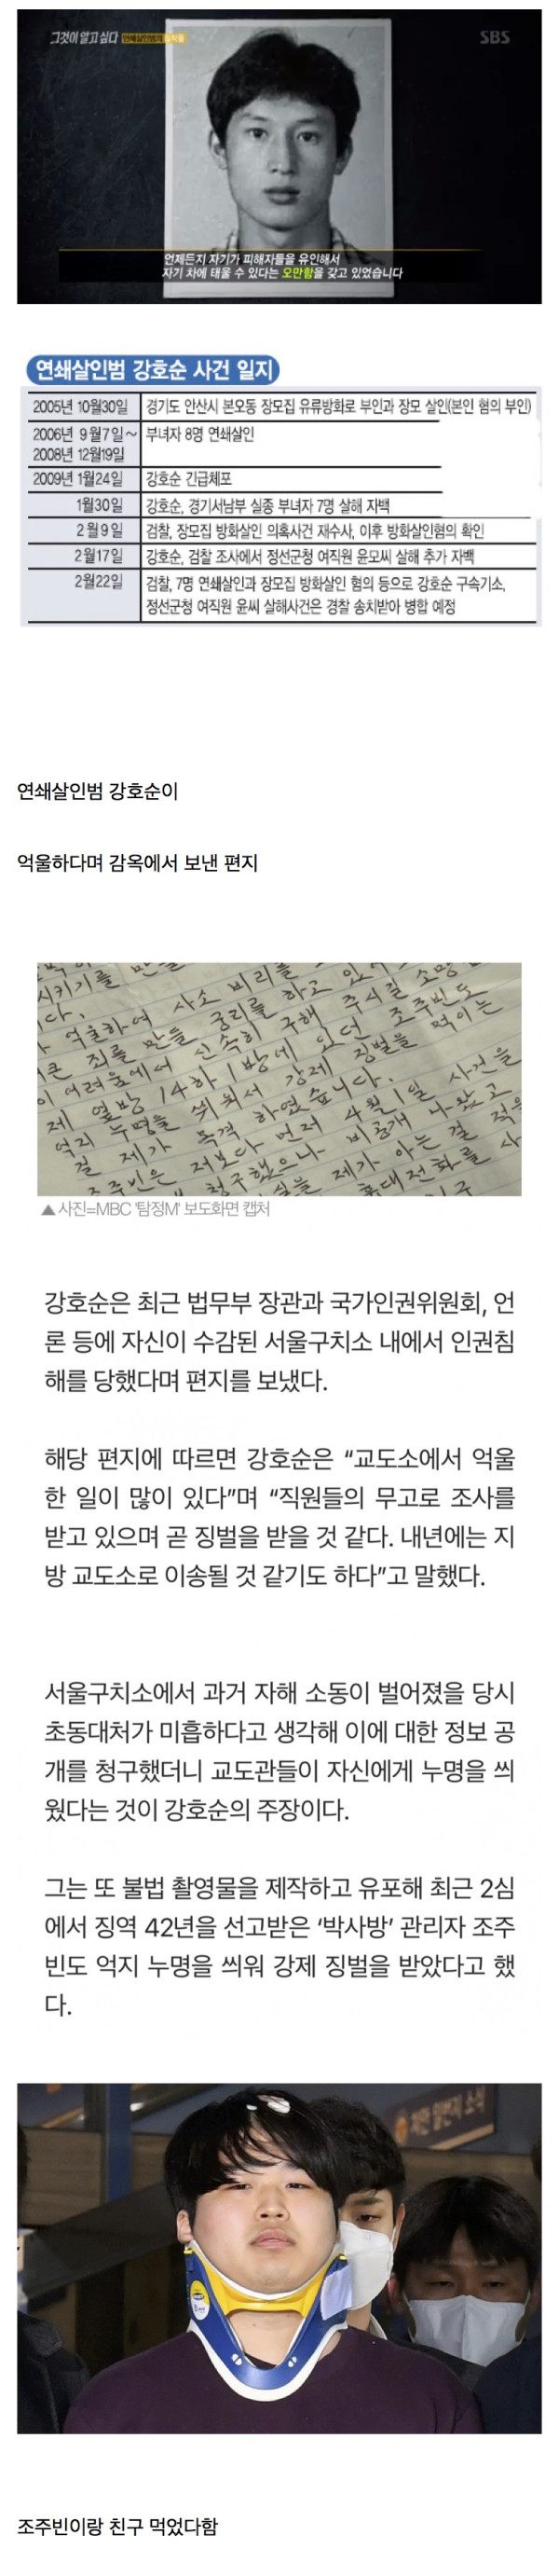 그것이 알고싶다
SBS
언제든지 자기가 피해자들을 유인해서
자기 차에 태울 수 있다는 오만함을 갖고 있었습니다
연쇄살인범 강호순 사건 일지
2005년 10월30일 경기도 안산시 본오동 장모집 유류방화로 부인과 장모 살인(본인 혐의 부인)
2006년 9월7일~ 부녀자 8명 연쇄살인
2008년 12월19일
2009년 1월24일 강호순 긴급체포
1월30일 강호순, 경기서남부 실종 부녀자 7명 살해 자백
2월9일 검찰, 장모집 방화살인 의혹사건 재수사, 이후 방화살인혐의 확인
2월17일 강호순, 검찰 조사에서 정선군청 여직원 윤모씨 살해 추가 자백
2월22일 검찰, 7명 연쇄살인과 장모집 방화살인 혐의 등으로 강호순 구속기소,
정선군청 여직원 윤씨 살해사건은 경찰 송치받아 병합 예정
연쇄살인범 강호순이
억울하다며 감옥에서 보낸 편지
시키기를
다.
억울하여 사소 비리를
큰 죄를 만들 궁리를 하고
이 어려움에서 신속히 구해 주시길 소망
제 옆방 14하 1방에 있던 조주빈도
억지 누명을 씌워서 강제 징벌을 먹이는
걸 제가 목격 하였습니다.
조주빈은 저보다 먼저 4월 1일 사건을
청구했으나 비공개 나왔고
제가 아는 걸
휴대전화를
▲ 사진=MBC '탐정M' 보도화면 캡처
강호순은 최근 법무부 장관과 국가인권위원회, 언
론 등에 자신이 수감된 서울구치소 내에서 인권침
해를 당했다며 편지를 보냈다.
해당 편지에 따르면 강호순은 “교도소에서 억울
한 일이 많이 있다”며 “직원들의 무고로 조사를
받고 있으며 곧 징벌을 받을 것 같다. 내년에는 지
방 교도소로 이송될 것 같기도 하다”고 말했다.
서울구치소에서 과거 자해 소동이 벌어졌을 당시
초동대처가 미흡하다고 생각해 이에 대한 정보 공
개를 청구했더니 교도관들이 자신에게 누명을 씌
웠다는 것이 강호순의 주장이다.
그는 또 불법 촬영물을 제작하고 유포해 최근 2심
에서 징역 42년을 선고받은 ‘박사방’ 관리자 조주
빈도 억지 누명을 씌워 강제 징벌을 받았다고 했
다.
조주빈이랑 친구 먹었다함